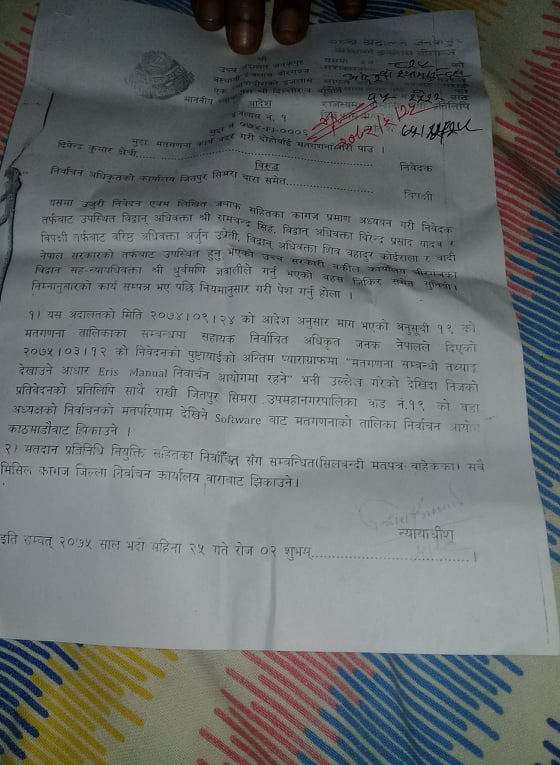 श्री
उच्च अदालत जनकपुर
अस्थायी इजलास वीरगन्ज
आदेश
इजलास नं. १
मुद्दा नं ०७४-FJ-0006
मुद्दा: मतगणना कार्य वदर गरी दोहोर्याई मतगणना गरी पाउं ।
दिपेन्द्र कुमार क्षेत्री
निवेदक
विरुद्ध
निर्वाचन अधिकृतको कार्यालय जितपुर सिमरा वारा समेत
विपक्षी
यसमा उजुरी निवेदन एवम लिखित जवाफ सहितका कागज प्रमाण अध्ययन गरी निवेदक
तर्फबाट उपस्थित विद्वान् अधिवक्ता श्री रामचन्द्र सिंह, विद्वान् अधिवक्ता विरेन्द्र प्रसाद यादव र
विपक्षी तर्फवाट वरिष्ठ अधिवक्ता अर्जुन उप्रेती, विद्वान् अधिवक्ता शिव वहादुर कोईराला र वादी
नेपाल सरकारको तर्फवाट उपस्थित हुनु भएको उच्च सरकारी वकील कार्यालय वीरगंजका
विद्वान सह-न्यायाधिवक्ता श्री धुर्वमणि ज्ञवालीले गर्नु भएको वहस जिकिर समेत सुनियो।
निम्नानुसारको कार्य सम्पन्न भए पछि नियमानुसार गरी पेश गर्नु होला ।
१) यस अदालतको मिति २०७४।०९।२४ को आदेश अनुसार माग भएको अनुसूची १९ को
मतगणना तालिकाका सम्वन्धमा सहायक निर्वाचित अधिकृत जनक नेपालले दिएको
२०७५।०३।१२ को निवेदनको पुष्टायाईको अन्तिम प्याराग्राफमा "मतगणना सम्वन्धी तथ्याङ्क
देखाउने आधार Eris Manual निर्वाचन आयोगमा रहने" भनी उल्लेख गरेको देखिदा निजको
प्रतिवेदनको प्रतिलिपि साथै राखी जितपुर सिमरा उपमहानगरपालिका वाड नं.१९ को वडा
अध्यक्षको निर्वाचनको मतपरिणाम देखिने Software बाट मतगणनाको तालिका निर्वाचन आयोग
काठमाडौंवाट झिकाउने ।
२) मतदान प्रतिनिधि नियुक्ति सहितका निर्वाचन संग सम्वन्धित(सिलवन्दी मतपत्र वाहेकका) सवै
मिसिल कागज जिल्ला निर्वाचन कार्यालय वारावाट झिकाउने।
न्यायाधीश
इति सम्वत् २०७५ साल भदौ महिना २५ गते रोज ०२ शुभम्